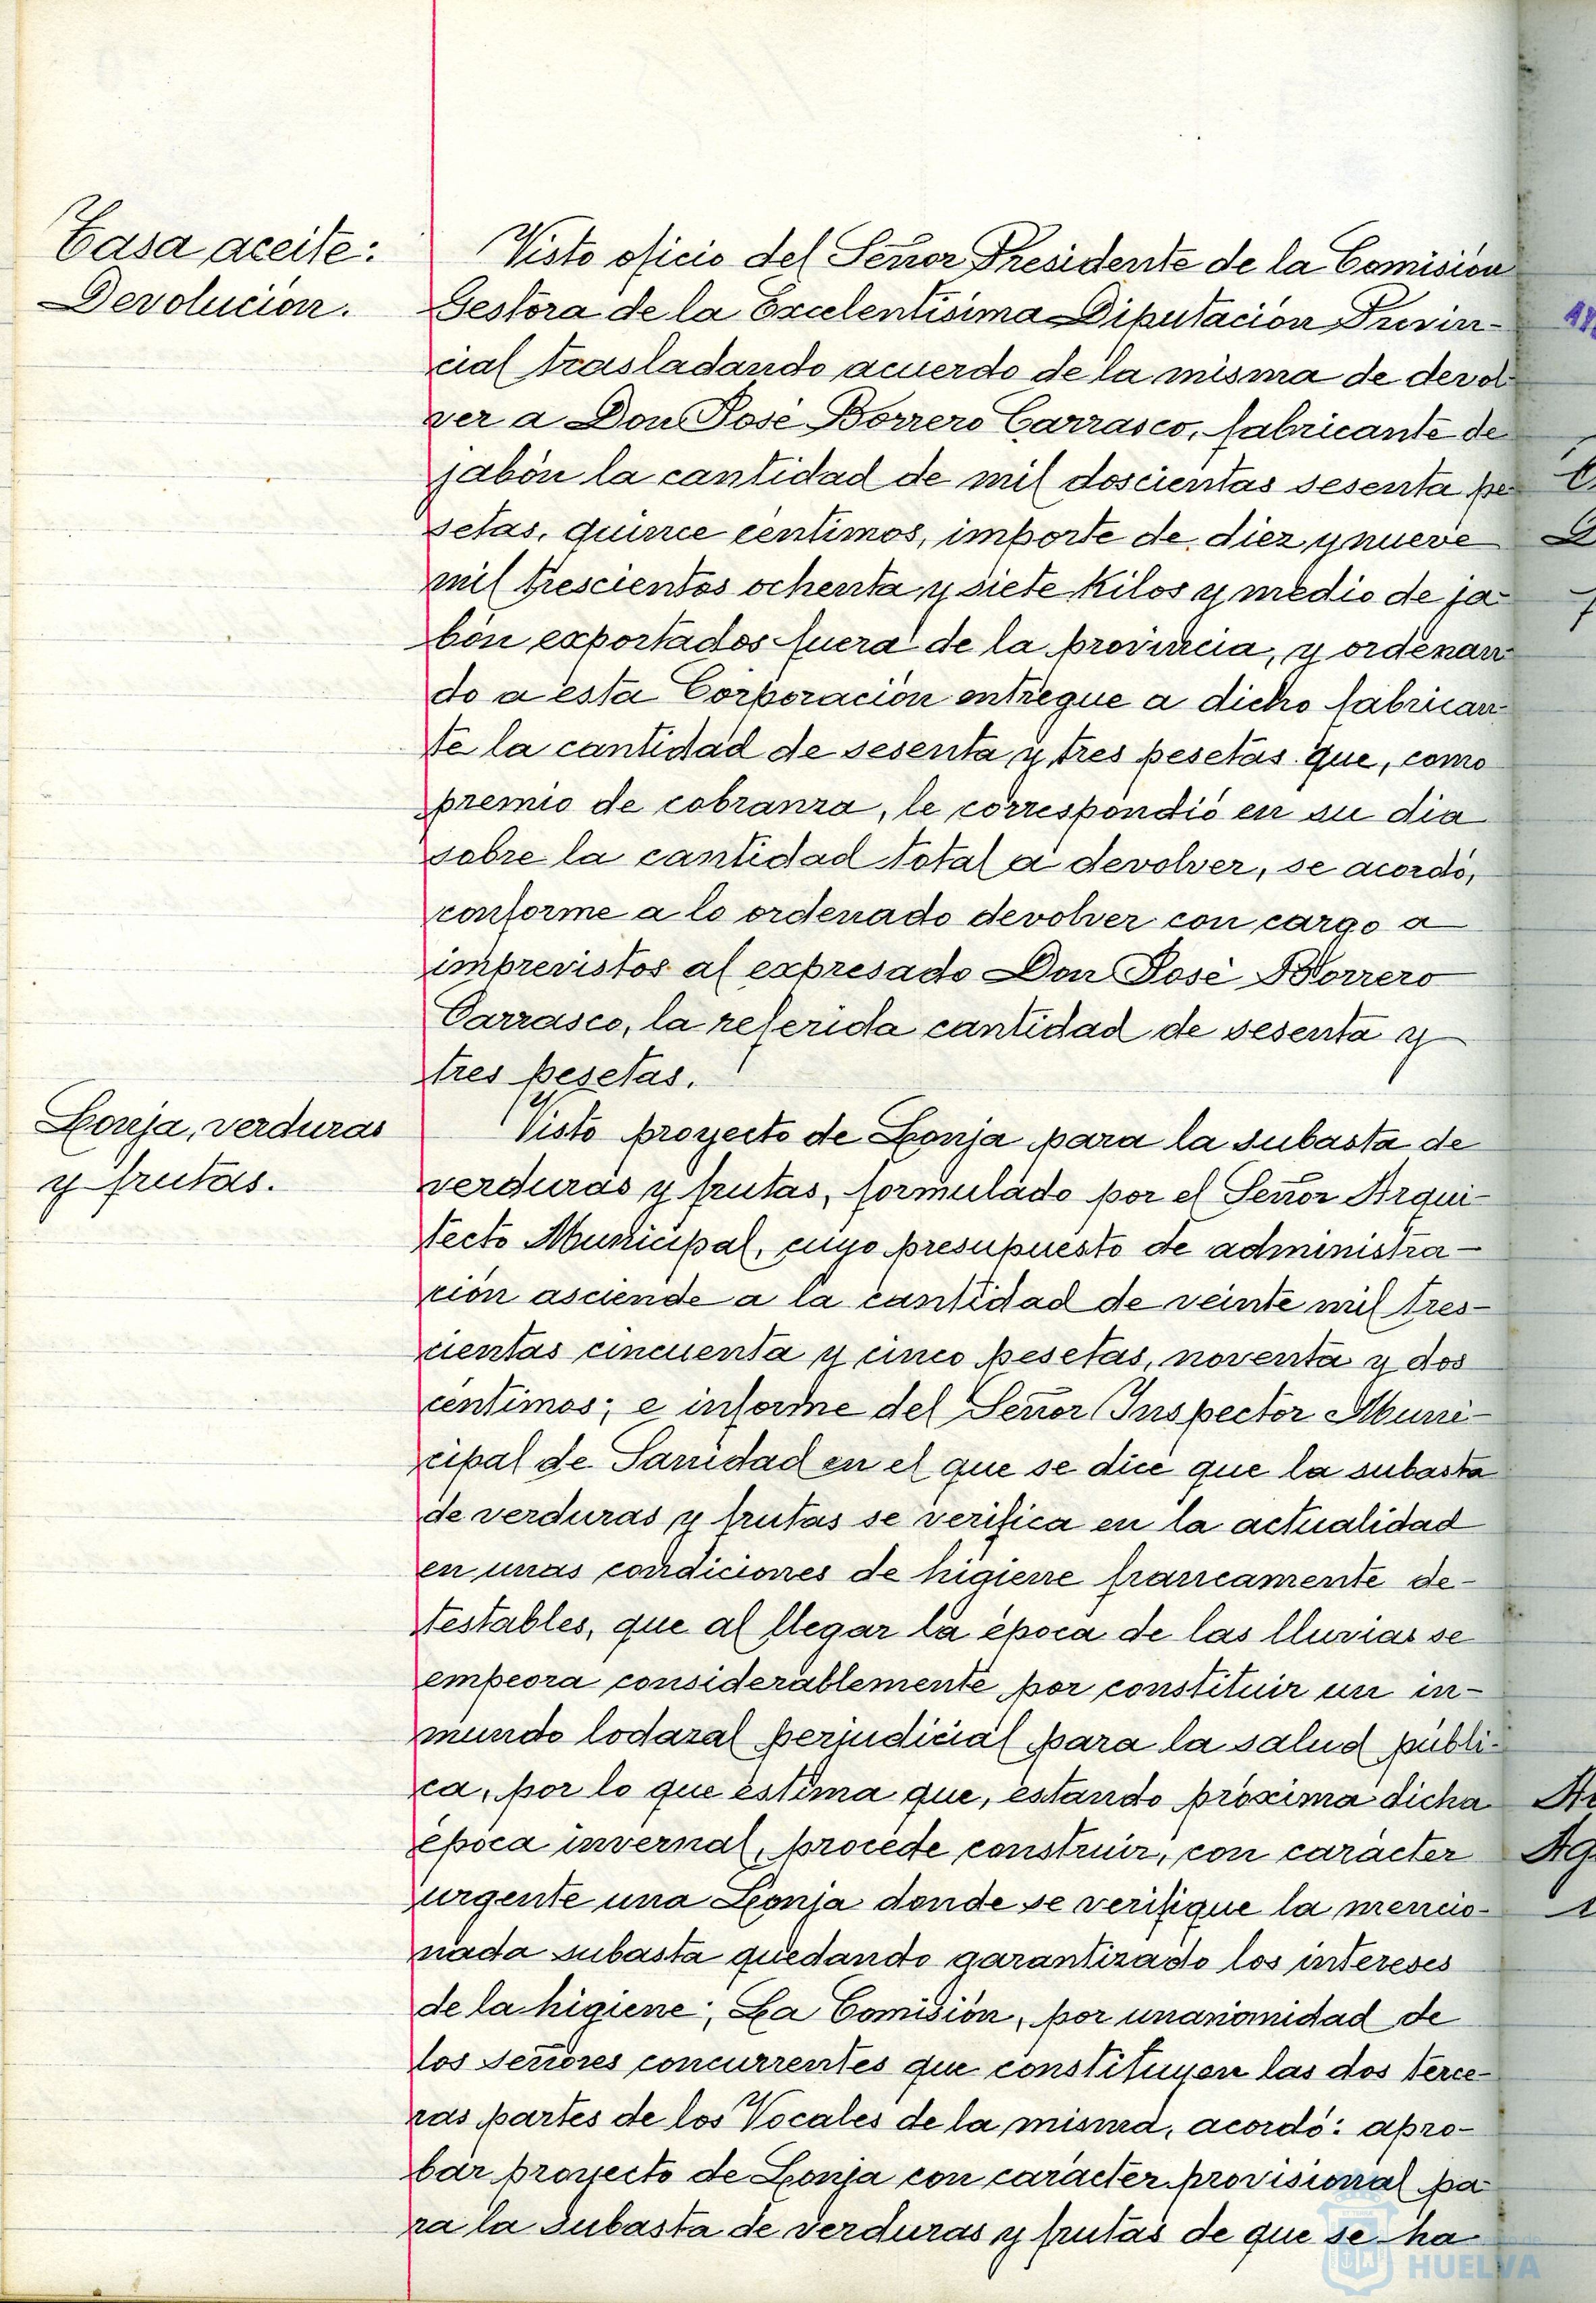 Tasa aceite:
Devolución.
Visto oficio del Señor Presidente de la Comisión
Gestora de la Excelentísima Diputación Provin-
cial trasladando acuerdo de la misma de devol
ver a Don José Borrero Carrasco, fabricante de
jabón la cantidad de mil doscientas sesenta pe
setas, quince céntimos, importe de diez y nueve
mil trescientos ochenta y siete kilos y medio de ja
bón exportados fuera de la provincia, y ordenan
do a esta Corporación entregue a dicho fabrican
te la cantidad de sesenta y tres pesetas que, como
premio de cobranza, le correspondió en su dia
sobre la cantidad total a devolver, se acordó,
conforme a lo ordenado devolver con cargo a
imprevistos al expresado Don José Borrero
Carrasco, la referida cantidad de sesenta y
tres pesetas.
Lonja, verduras
y frutas.
Visto proyecto de Lonja para la subasta de
verduras y frutas, formulado por el Señor Arqui-
tecto Municipal, cuyo presupuesto de administra-
ción asciende a la cantidad de veinte mil tres-
cientas cincuenta y cinco pesetas, noventa y dos
céntimos; e informe del Señor Inspector Muni-
cipal de Sanidad en el que se dice que la subasta
de verduras y frutas se verifica en la actualidad
en unas condiciones de higiene francamente de-
testables, que al llegar la época de las lluvias se
empeora considerablemente por constituir un in-
mundo lodazal perjudicial para la salud públi-
ca, por lo que estima que, estando próxima dicha
época invernal, procede construir, con carácter
urgente una Lonja donde se verifique la mencio-
nada subasta quedando garantizado los intereses
de la higiene; La Comisión, por unanimidad de
los señores concurrentes que constituyen las dos terce-
ras partes de los Vocales de la misma, acordó: apro-
bar proyecto de Lonja con carácter provisional pa
ra la subasta de verduras y frutas de que se ha
HUELVA